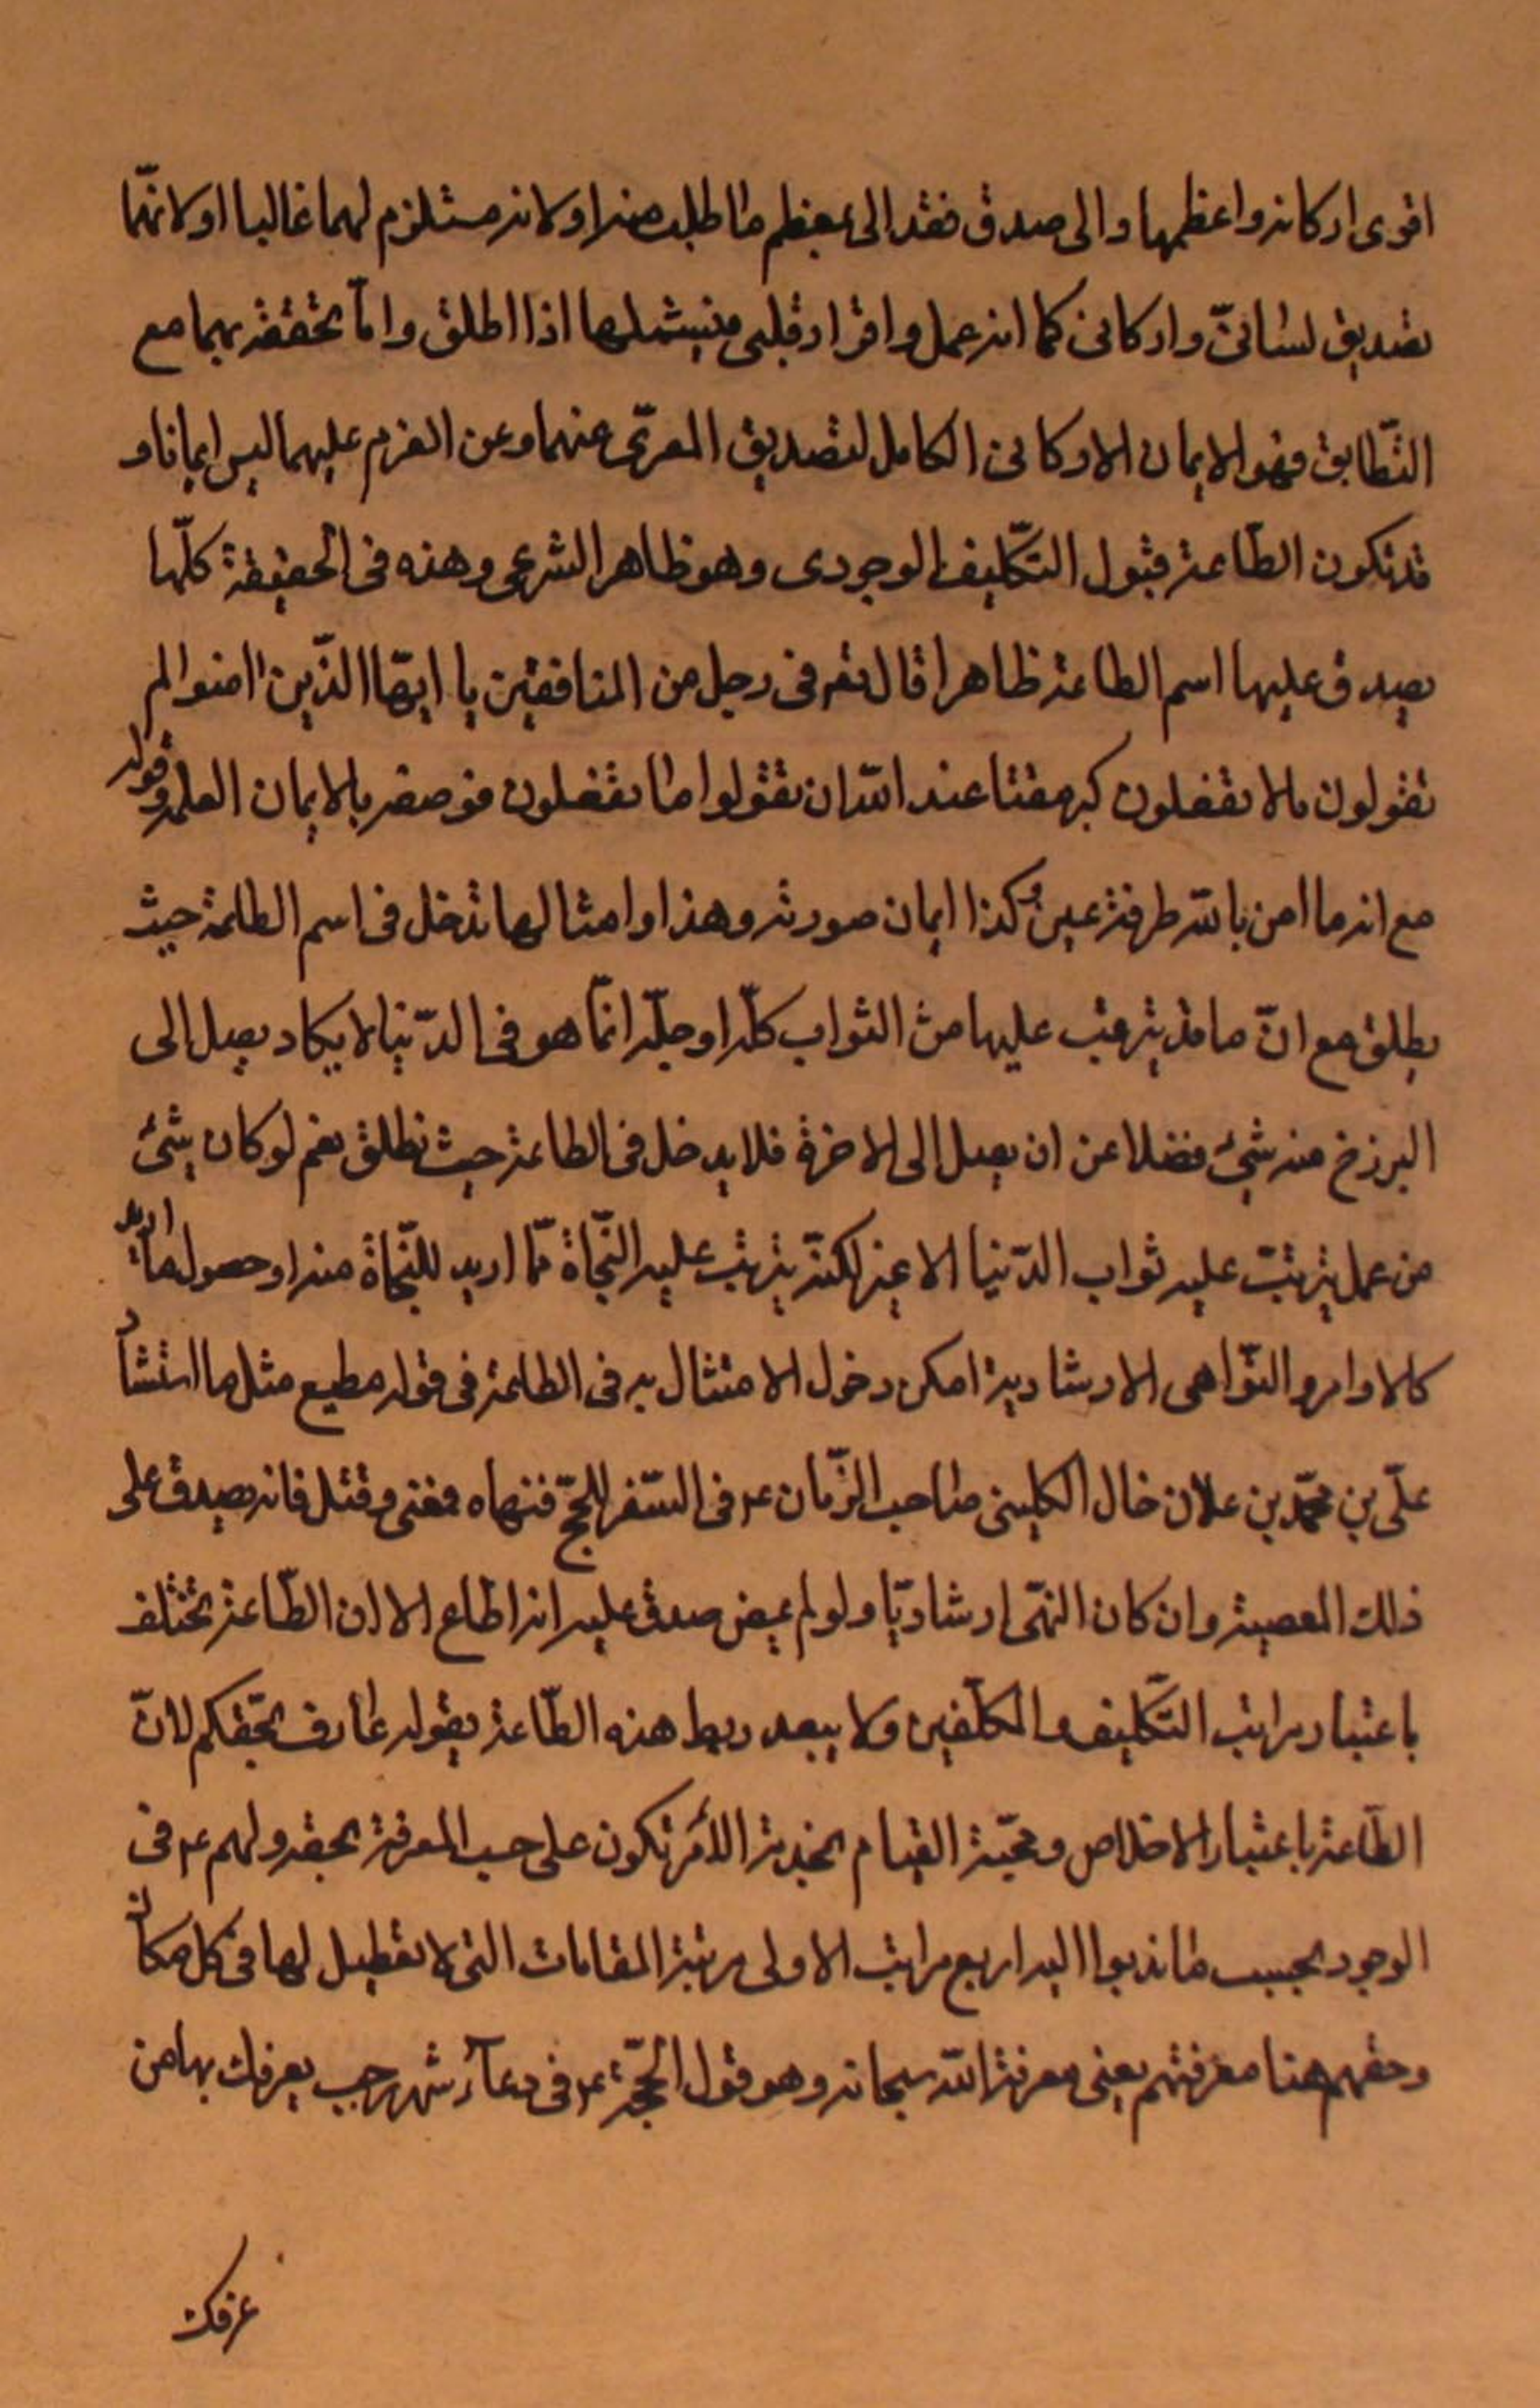 اقوى اركانه واعظمها والى صدق فقد الى بمعظم ما طلب منه او لانه مستلزم لهما غالبا او لانهما
تصديق لسانىّ واركانى كما انه عمل واقرار قلبى فيشملها اذا اطلق وامّا تحققه بهما مع
التّطابق فهو الايمان الاركانى الكامل لتصديق المعرّى عنهما وعن العزم عليهما ليس ايمانا و
قد تكون الطّاعة قبول التّكليف الوجودى وهو ظاهر الشرعى وهذه فى الحقيقة كلّها
يصدق عليها اسم الطاعة ظاهرا قال تعه فى رجل من المنافقين يا ايّها الذّين امنوا لم
تقولون ما لا تفعلون كبر مقتا عند اللّه ان تقولوا ما لا تفعلون فوصفه بالايمان العلم وقوله
مع انه ما امن باللّه طرفة عين وكذا ايمان صورته وهذا وامثالها تدخل فى اسم الطاعة حيث
يطلق مع انّ ما قد يترتب عليها من الثواب كلّه او جلّه انمّا هو فى الدّنيا لا يكاد يصل الى
البرزخ منه شىء فضلا عن ان يصل الى الاخرة فلا يدخل فى الطاعة حيث تطلق نعم لو كان شىء
من عمل يترتبّ عليه ثواب الدّنيا لا غير لكنّه يترتب عليه النّجاة ممّا اريد للنّجاة منه او حصول ما اريد
كالاوامر والنّواهى الارشادية امكن دخول الامتثال به فى الطاعة فى قوله مطيع مثل ما استشار
علّى بن محمّد بن علان خال الكلينى صاحب الزّمان ع فى السّفر للحجّ فنهاه فمضى وقتل فانه يصدق على
ذلك المعصية وان كان النهّى ارشاديّا ولو لم يمض صدق عليه انه اطاع الا ان الطّاعة تختلف
باعتبار مراتب التّكليف والمكلّفين ولا يبعد ربط هذه الطّاعة بقوله عارف بحّقكم لانّ
الطّاعة باعتبار الاخلاص ومحبّة القيام بخدمة الأمر تكون على حسب المعرفة بحقه ولهم ع فى
الوجود بحسب ما ندبوا اليه اربع مراتب الاولى مرتبة المقامات التى لا تعطيل لها فى كل مكان
وحقهم هنا معرفتهم يعنى معرفة اللّه سبحانه وهو قول الحجّة ع فى دعاء شهر رجب يعرفك بها من
عرفك